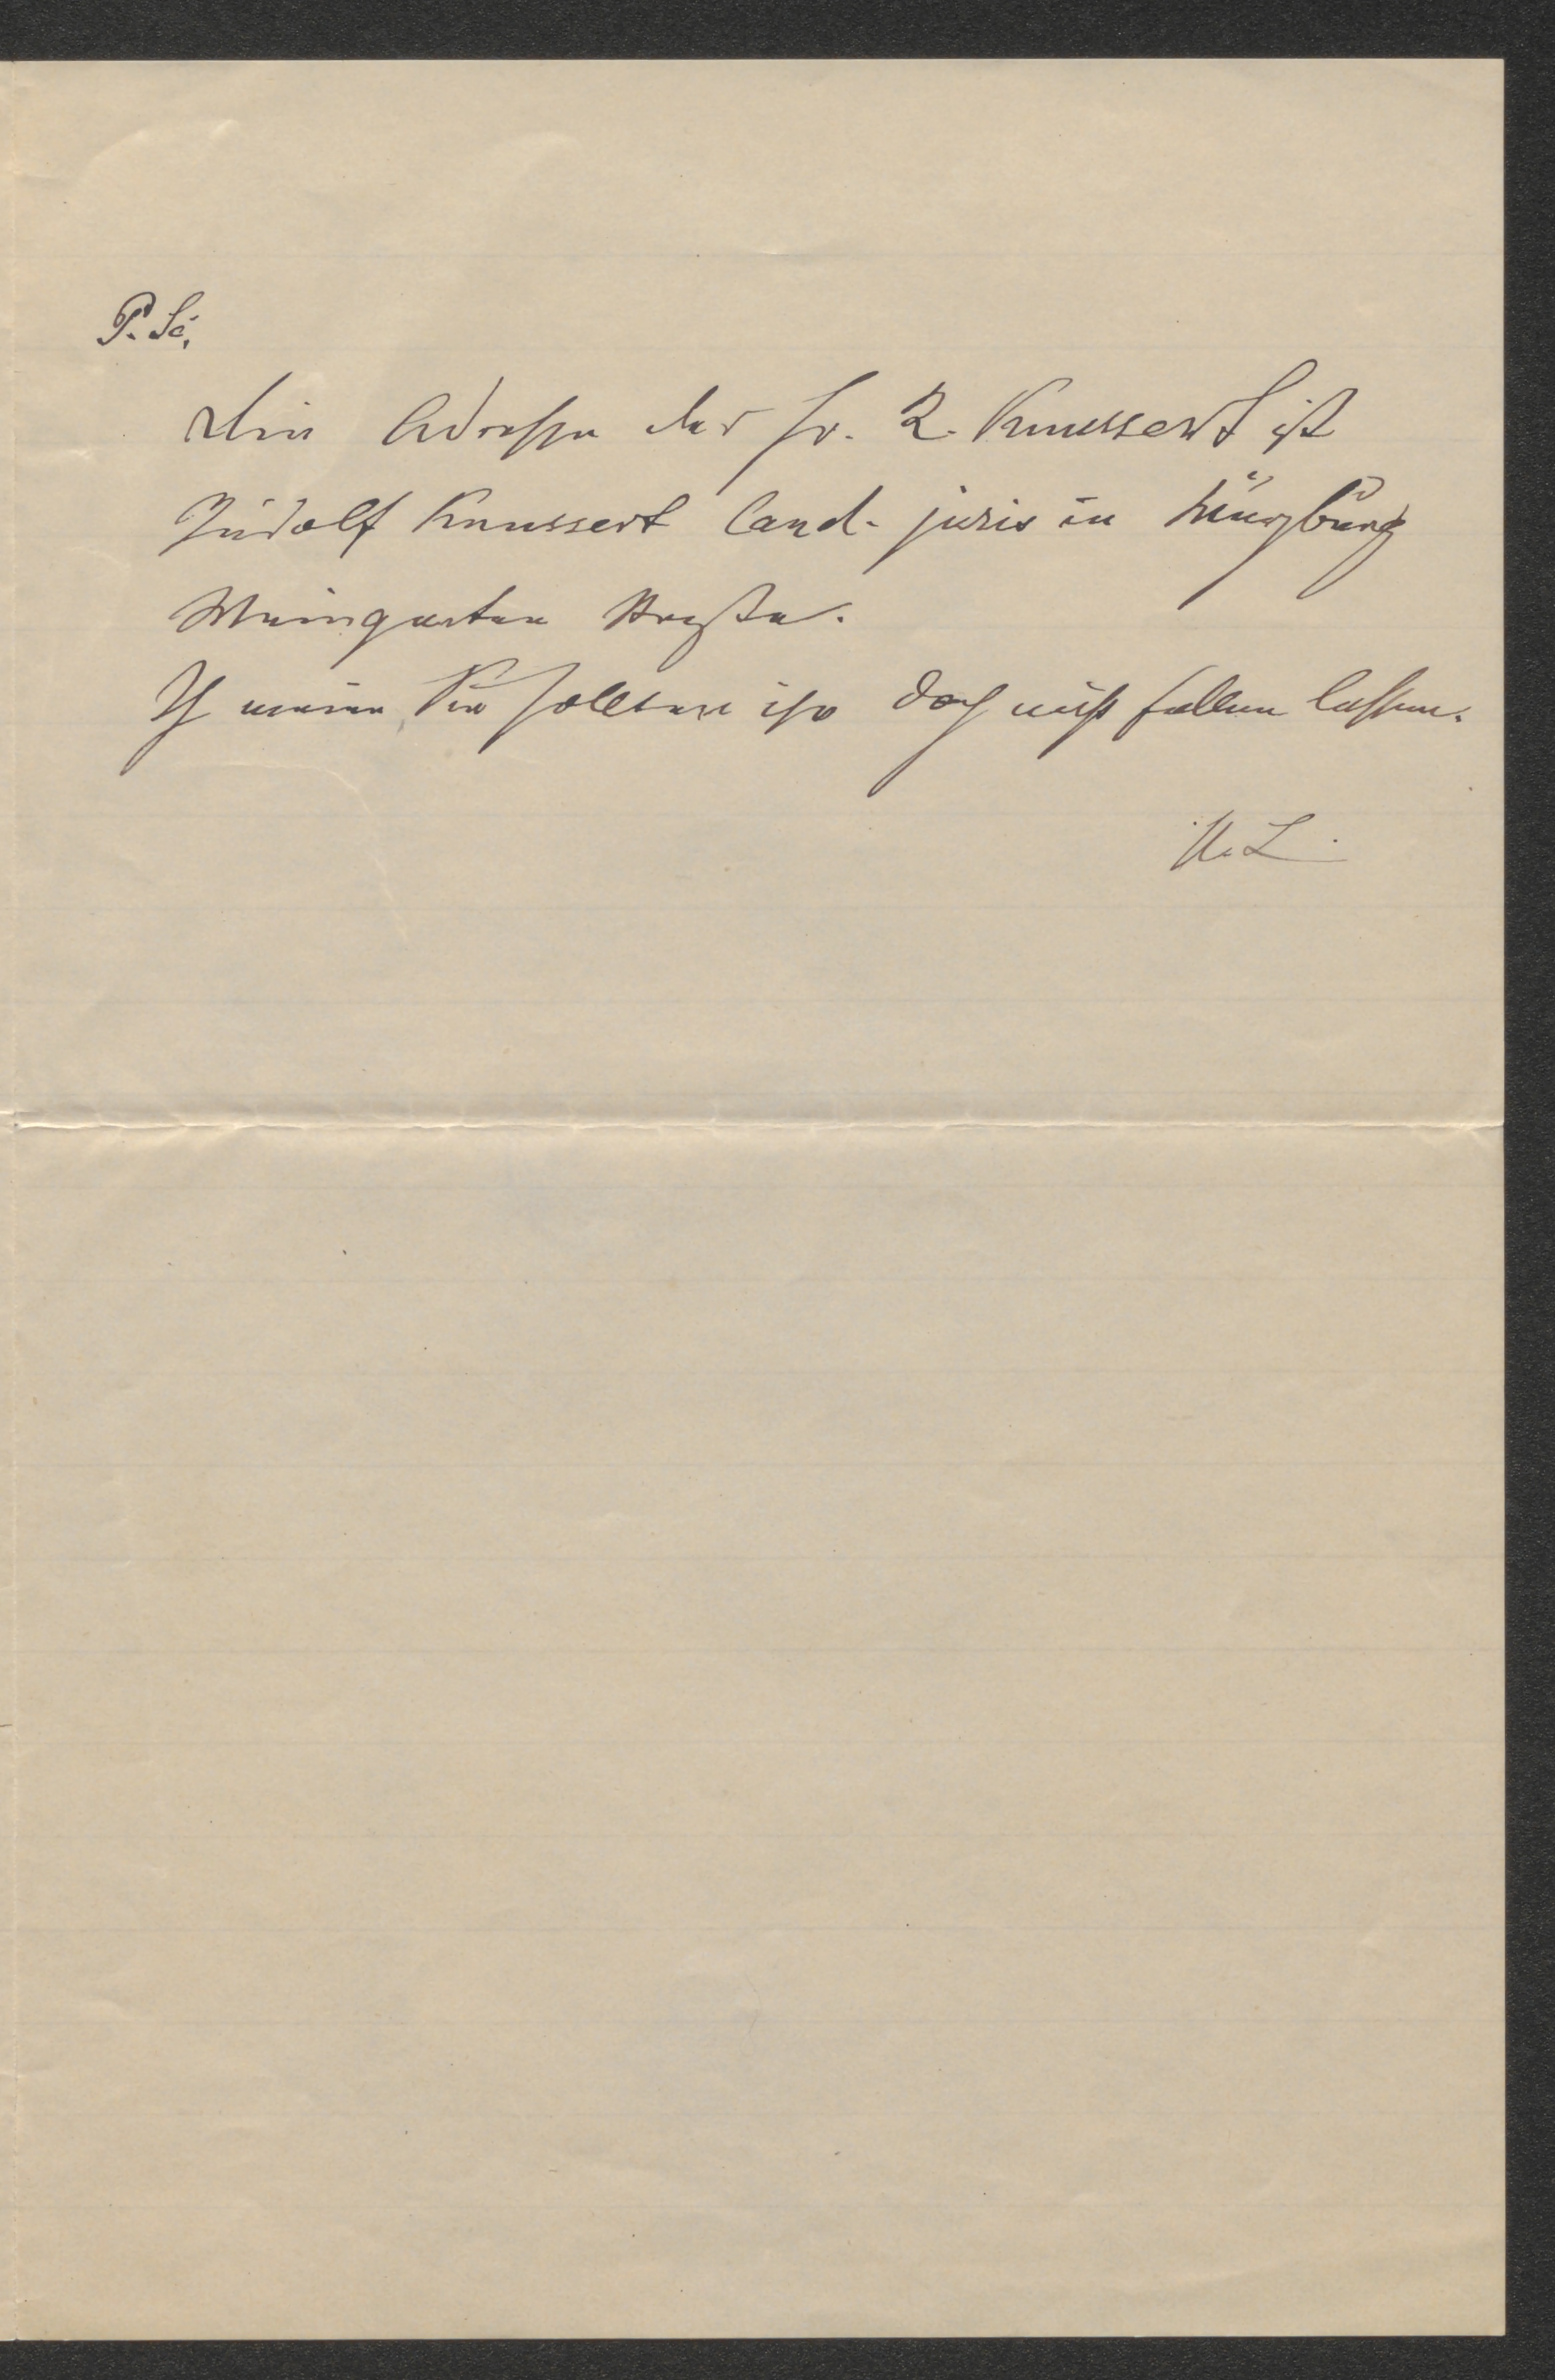 P. Sc.
Die Adresse des Hr. R. Knussert ist
Rudolf Knussert Cand. juris in Würzburg
Weingarten Straße.
Ich meine, Sie sollten ihn doch nicht fallen lassen.
U. L.